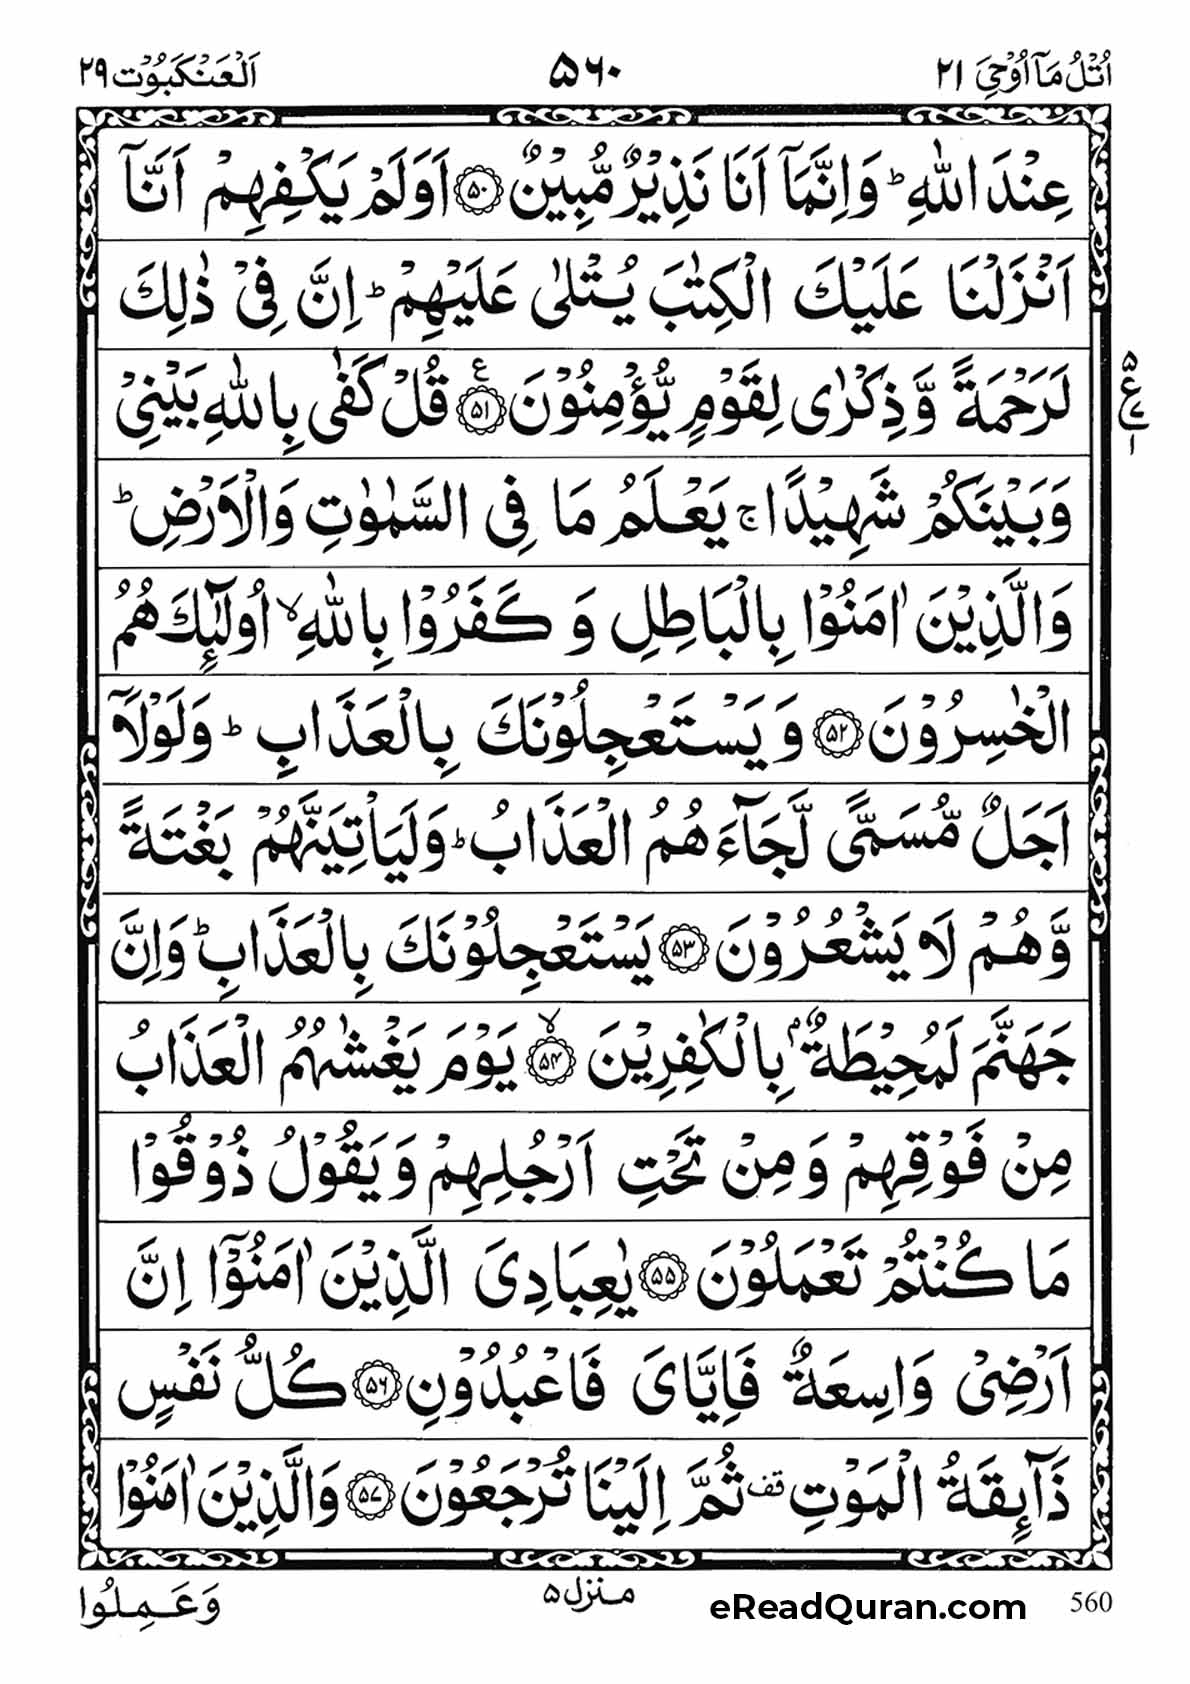 اُتْلُ مَآ اُوْحِيَ ٢١ ۵۶۰ اَلْعَنْكَبُوْت ٢٩
عِنْدَ اللّٰهِ ؕ وَاِنَّمَاۤ اَنَا نَذِيْرٌ مُّبِيْنٌ ﴿۵۰﴾ اَوَلَمْ يَكْفِهِمْ اَنَّاۤ
اَنْزَلْنَا عَلَيْكَ الْكِتٰبَ يُتْلٰى عَلَيْهِمْ ؕ اِنَّ فِيْ ذٰلِكَ
لَرَحْمَةً وَّ ذِكْرٰى لِقَوْمٍ يُّؤْمِنُوْنَ ﴿۵۱﴾ ع قُلْ كَفٰى بِاللّٰهِ بَيْنِيْ
۵ ع ١
وَبَيْنَكُمْ شَهِيْدًا ۚ يَعْلَمُ مَا فِي السَّمٰوٰتِ وَالْاَرْضِ ؕ
وَالَّذِيْنَ اٰمَنُوْا بِالْبَاطِلِ وَ كَفَرُوْا بِاللّٰهِ ۙ اُولٰٓئِكَ هُمُ
الْخٰسِرُوْنَ ﴿۵۲﴾ وَ يَسْتَعْجِلُوْنَكَ بِالْعَذَابِ ؕ وَلَوْلَاۤ
اَجَلٌ مُّسَمًّى لَّجَآءَهُمُ الْعَذَابُ ؕ وَلَيَاْتِيَنَّهُمْ بَغْتَةً
وَّهُمْ لَا يَشْعُرُوْنَ ﴿۵۳﴾ يَسْتَعْجِلُوْنَكَ بِالْعَذَابِ ؕ وَاِنَّ
جَهَنَّمَ لَمُحِيْطَةٌۢ بِالْكٰفِرِيْنَ ﴿۵۴﴾ ۙ يَوْمَ يَغْشٰىهُمُ الْعَذَابُ
مِنْ فَوْقِهِمْ وَ مِنْ تَحْتِ اَرْجُلِهِمْ وَ يَقُوْلُ ذُوْقُوْا
مَا كُنْتُمْ تَعْمَلُوْنَ ﴿۵۵﴾ يٰعِبَادِيَ الَّذِيْنَ اٰمَنُوْۤا اِنَّ
اَرْضِيْ وَاسِعَةٌ فَاِيَّايَ فَاعْبُدُوْنِ ﴿۵۶﴾ كُلُّ نَفْسٍ
ذَآئِقَةُ الْمَوْتِ قف ثُمَّ اِلَيْنَا تُرْجَعُوْنَ ﴿۵۷﴾ وَالَّذِيْنَ اٰمَنُوْا
560 eReadQuran.com منزل ۵ وَ عَمِلُوا